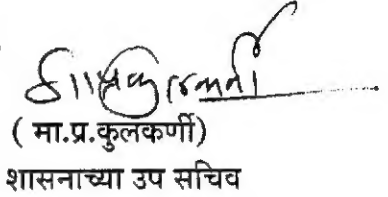 ( मा.प्र.कुलकर्णी)
शासनाच्या उप सचिव